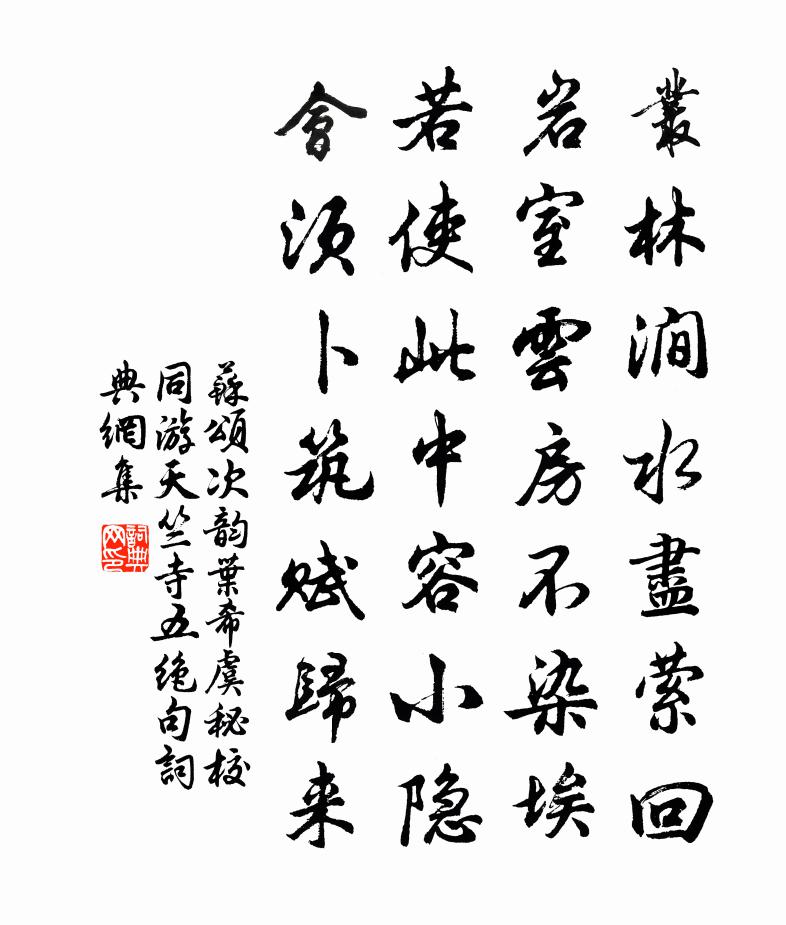 叢林澗水盡萦回
岩室雲房不染埃
若使此中容小隐
會須卜筑赋歸来
蘇頌次韵葉希虞秘校
同游天竺寺五绝句詞
典網集
詞典网印